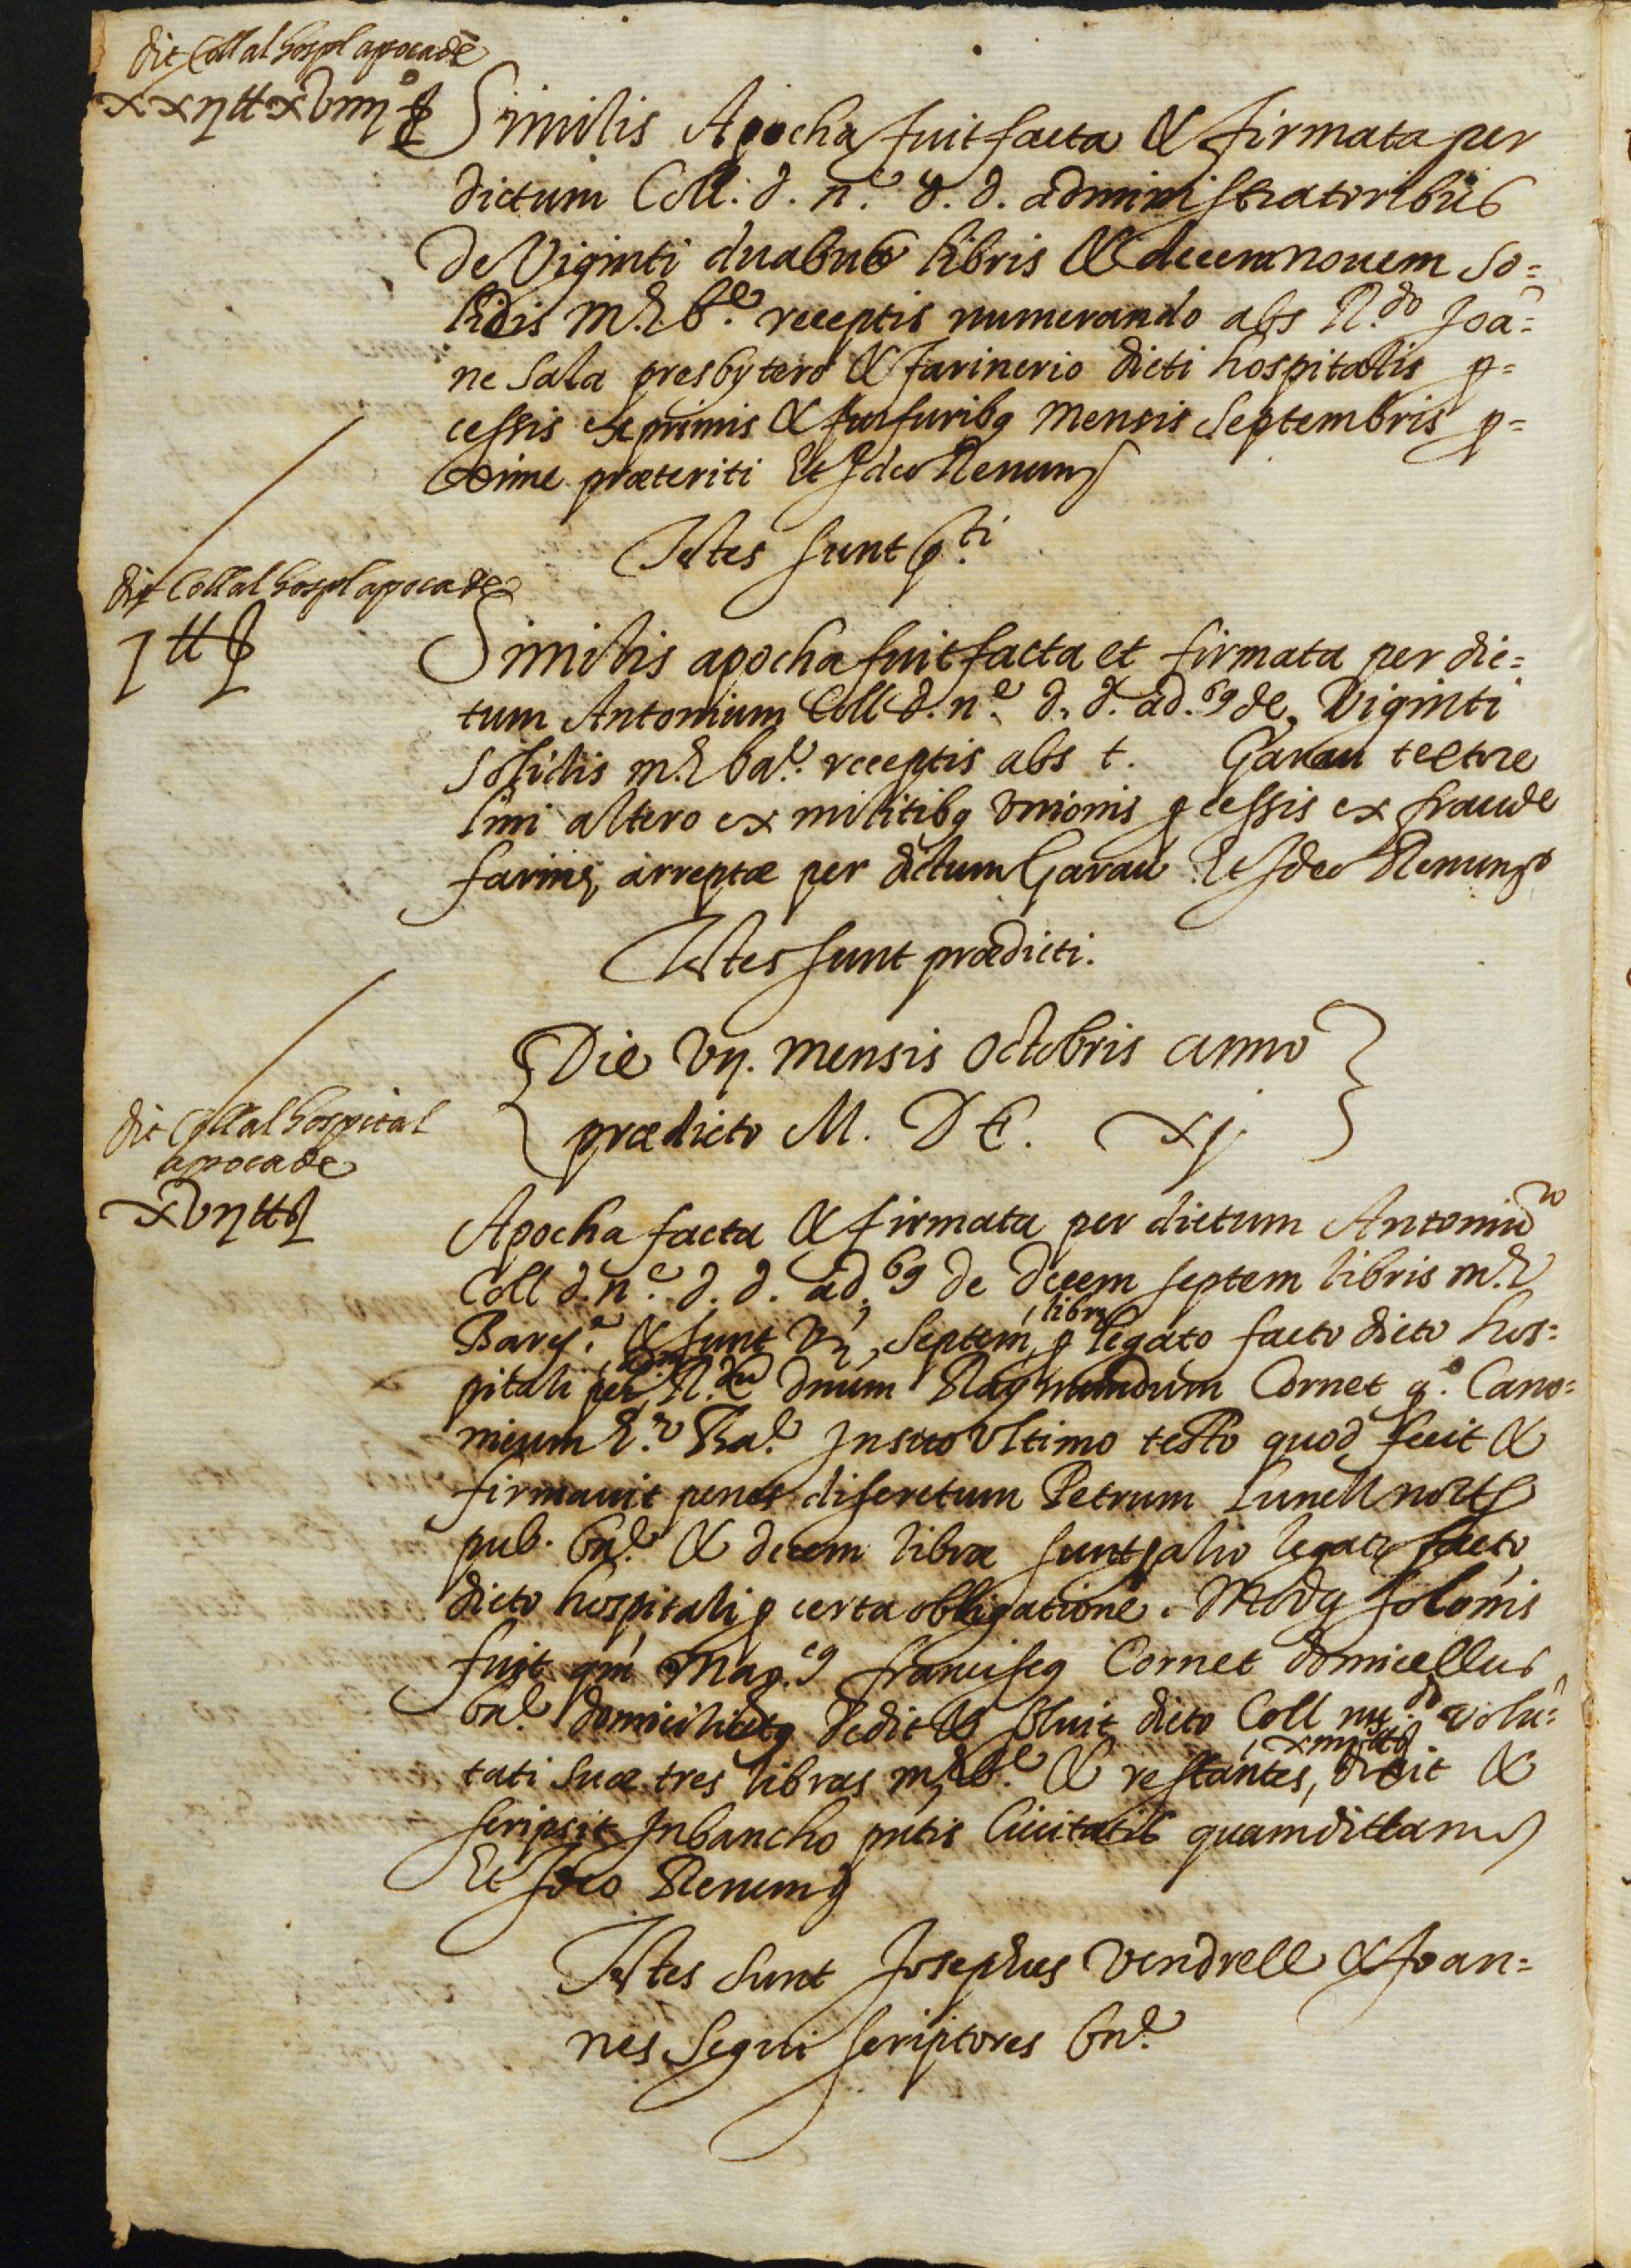 dit Coll al hospl apoca de
xxij ₶ xviiij ß
Similis Apocha fuit facta & firmata per
dictum Coll. d. n.e d. d. administratoribus
de Viginti duabus libris & decem novem so=
lidis m.e b.e receptis numerando abs R.do Joã=
ne Sala presbytero & farinerio dicti hospitalis p=
cessis ex primis & furfuribq mensis Septembris p=
xime præteriti Et Ideo Renun
Testes sunt p.ti
dit Coll al hospl apoca de
j ₶ ß
Similis apocha fuit facta et firmata per dic=
tum Antonium Coll d. n.e d. d. ad.bq de Viginti
solidis m.e ba.e receptis abs t. Garau textore
lini altero ex militibq Unionis p cessis ex fraude
farinę arreptæ per dictum Garau Et Ideo Renun
Testes sunt prædicti.
Die vij. mensis octobris anno
prædicto M. DC. xj
dit Coll al hospital
apoca de
xvij ₶ ß
Apocha facta & firmata per dictum Antoniũ
Coll d. n.e d. d. ad.bq de decem septem libris m.e
Barc.e & sunt septem libre p legato facto dicto hos=
pitali per R.du dnum Raymundum Cornet q.o Cano=
nicum Ba.e in suo ultimo testo quod fecit &
firmavit penes discretum Petrum Lunell
pub. bn.e & decem libræ sunt p alio legato facto
dicto hospitali p certa obligatione. Modq solonis
fuit qm Mag.cq francisq Cornet domicellus
bn.e domiciliatq dedit & soluit dicto Coll volũ=
tati suæ tres libras m.e b.e & restantes, xiiij ₶ dixit &
scripsit In bancho pntis Civitatis quam dittam
Et Ideo Renun
Testes sunt Josephus Vendrell & Joan=
nes Segui scriptores bn.e